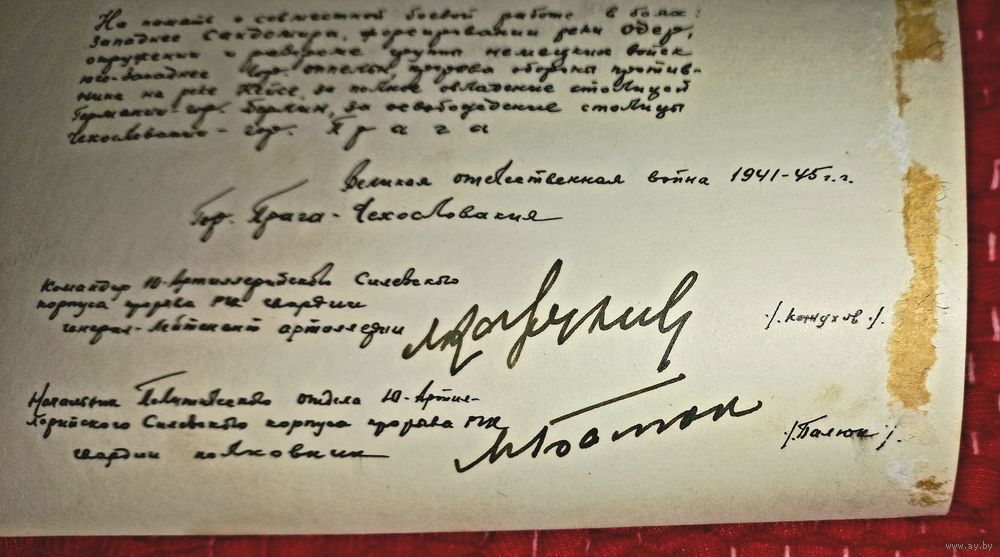 На память о совместной боевой работе в боях:
Западнее Сандомира, форсировании реки Одер,
окружении и разгроме группы немецких войск
юго-западнее гор. Оппельн, прорыва обороны против-
ника на реке Нейсе, за полное овладение столицей
Германии - гор. Берлин, за освобождение столицы
Чехословакии - гор. Прага
Великая отечественная война 1941-45 г.г.
Гор. Прага - Чехословакия
Командир 10-Артиллерийского Силезского
корпуса прорыва РГК гвардии
генерал-лейтенант артиллерии
/Кожухов/.
Начальник Политического отдела 10-Артил-
лерийского Силезского корпуса прорыва РГК
гвардии полковник
/Палюк/.
www.ay.by